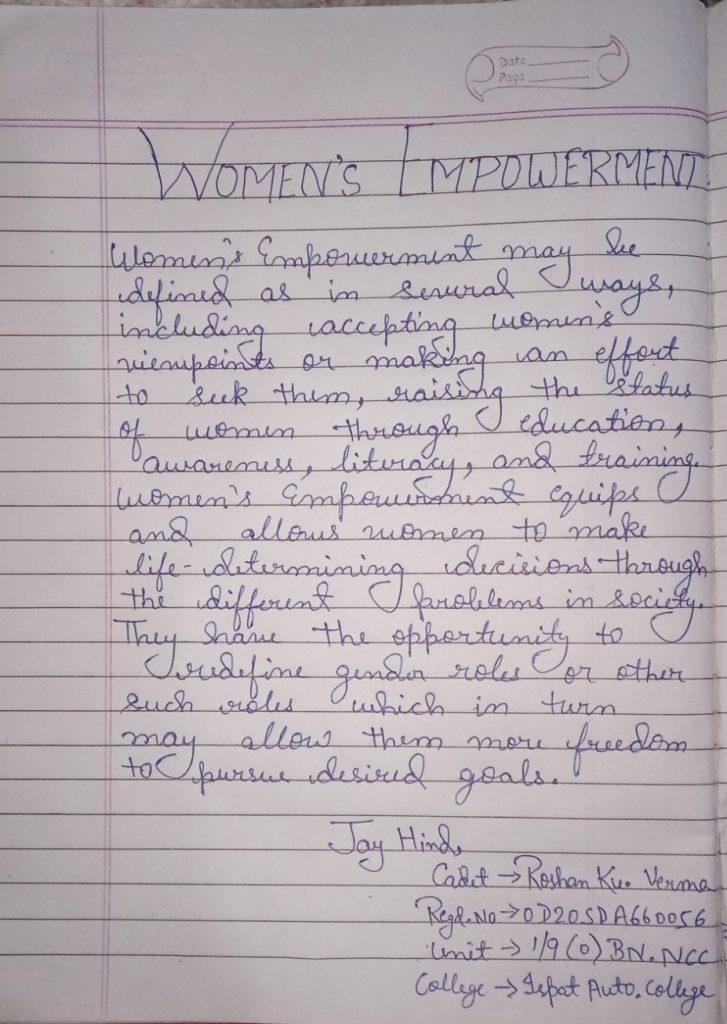 Date
Page
WOMEN'S EMPOWERMENT
Women's Empowerment may be
defined as in several ways,
including accepting women's
viewpoints or making an effort
to seek them, raising the status
of women through education,
awareness, literacy, and training.
Women's Empowerment equips
and allows women to make
life-determining decisions through
the different problems in society.
They have the opportunity to
redefine gender roles or other
such roles which in turn
may allow them more freedom
to pursue desired goals.
Jay Hind,
Cadet → Roshan Ku. Verma
Regd. No → OD20SDA660056
Unit → 1/9 (O) BN. NCC
College → Ispat Auto. College